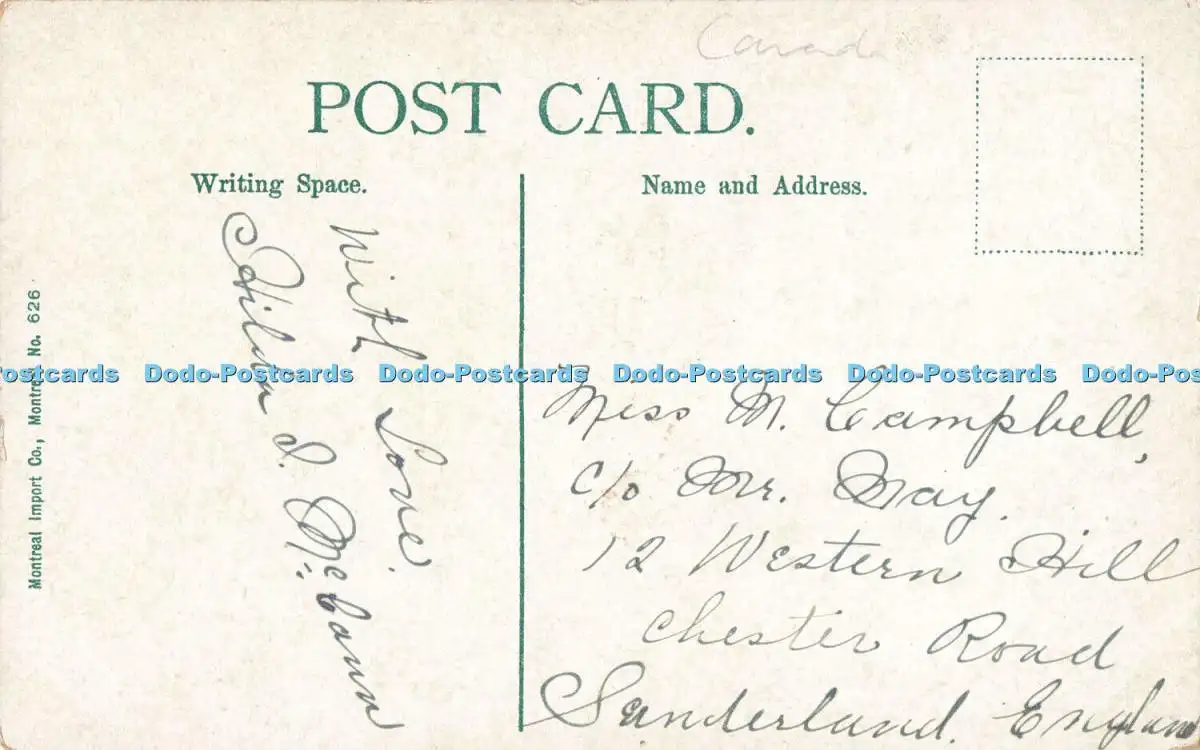 Canada
POST CARD.
Writing Space.
Name and Address.
With Love.
Hilda I. McCann
Miss M. Campbell,
c/o Mr. May.
12 Western Hill
Chester Road
Sunderland. England
Montreal Import Co., Montreal No. 626
Dodo-Postcards Dodo-Postcards Dodo-Postcards Dodo-Postcards Dodo-Postcards